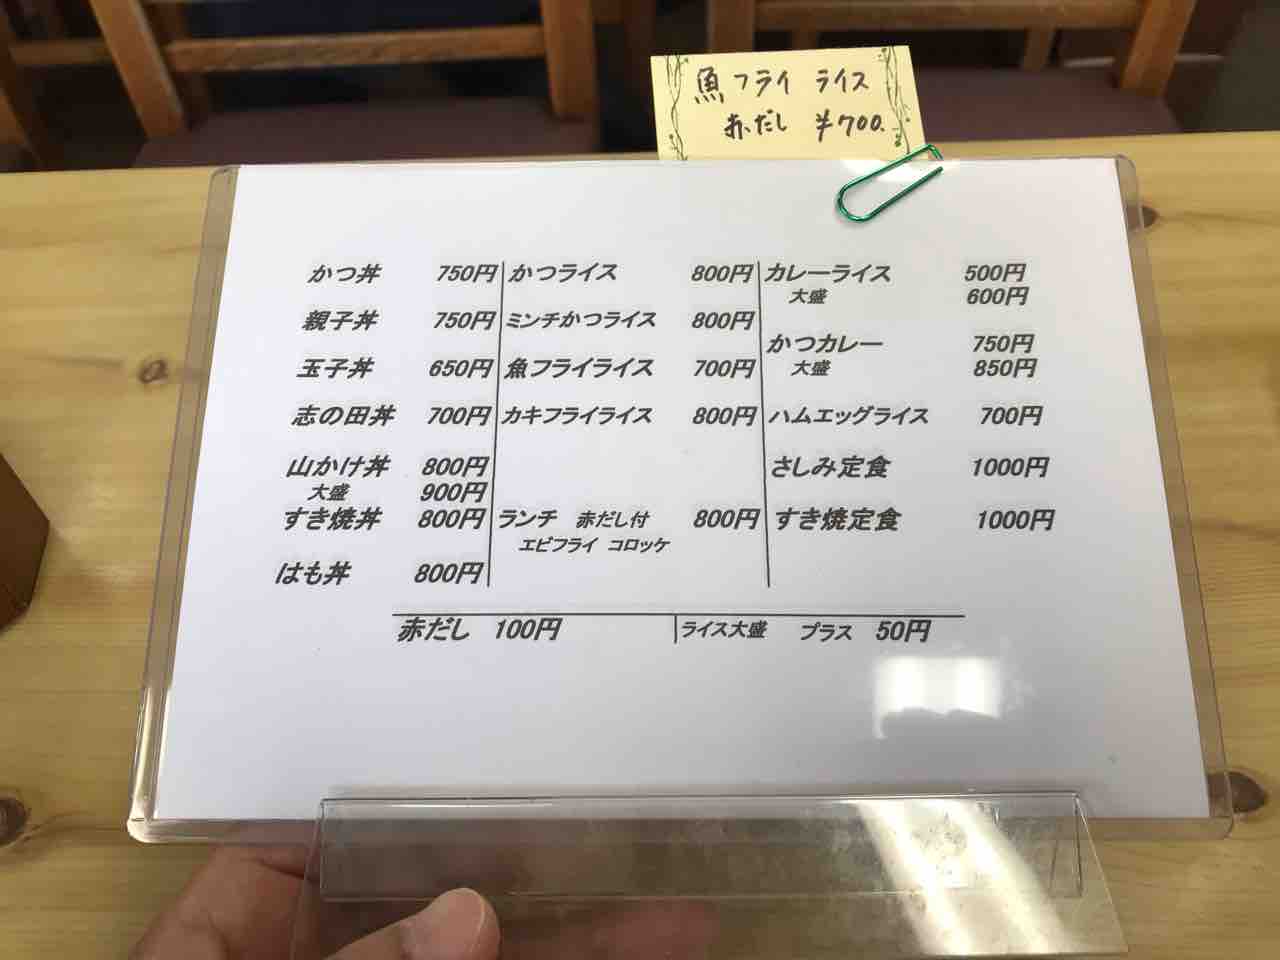 魚フライ ライス
赤だし ¥700.
かつ丼 750円
親子丼 750円
玉子丼 650円
志の田丼 700円
山かけ丼 800円
大盛 900円
すき焼丼 800円
はも丼 800円
かつライス 800円
ミンチかつライス 800円
魚フライライス 700円
カキフライライス 800円
ランチ 赤だし付 800円
エビフライ コロッケ
カレーライス 500円
大盛 600円
かつカレー 750円
大盛 850円
ハムエッグライス 700円
さしみ定食 1000円
すき焼定食 1000円
赤だし 100円
ライス大盛 プラス 50円